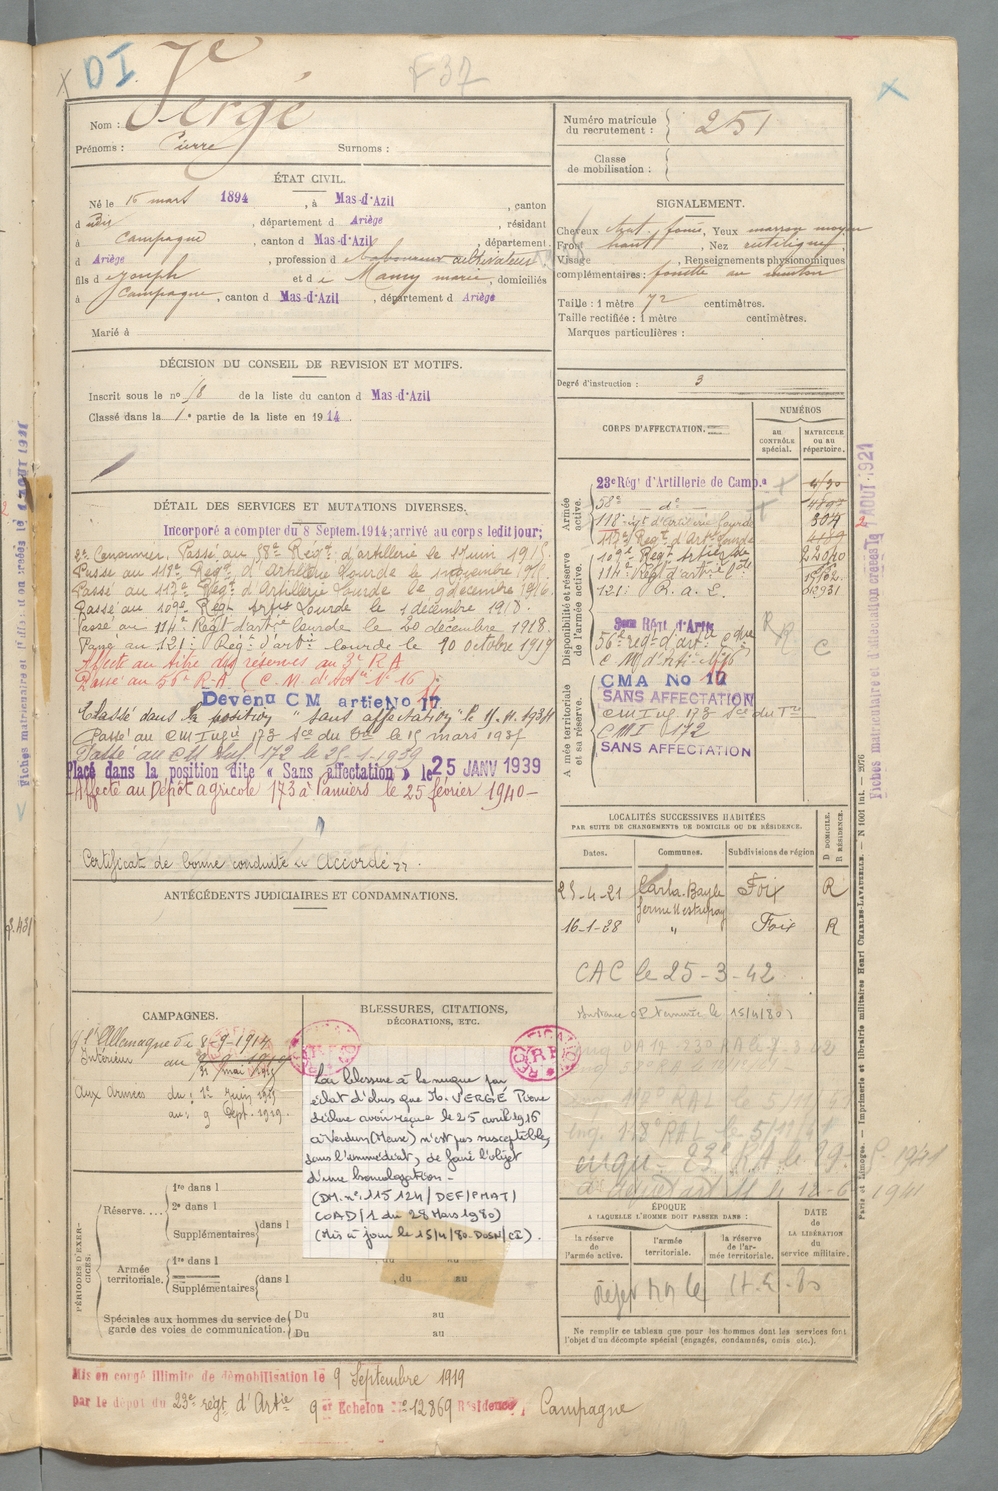 DI.
F 37
Nom : Vergé
Prénoms : Pierre Surnoms :
ÉTAT CIVIL.
Né le 15 mars 1894, à Mas-d'Azil, canton
d udit, département d Ariège, résidant
à Campagne, canton d Mas-d'Azil, département
d Ariège, profession d laboureur cultivateur
fils d e Joseph et d e Mancy marie, domiciliés
à Campagne, canton d Mas-d'Azil, département d Ariège
Marié à
DÉCISION DU CONSEIL DE REVISION ET MOTIFS.
Inscrit sous le no 18 de la liste du canton d Mas-d'Azil
Classé dans la 1e partie de la liste en 1914
DÉTAIL DES SERVICES ET MUTATIONS DIVERSES.
Incorporé a compter du 8 Septem. 1914; arrivé au corps ledit jour;
2e Canonnier. Passé au 58e Régt d'artillerie le 1er juin 1915.
Passé au 118e Régt d'Artillerie Lourde le 1 novembre 1915.
Passé au 117e Régt d'Artillerie Lourde le 9 décembre 1916.
Passé au 109e Régt Artie Lourde le 1 décembre 1918.
Passé au 114e Régt d'artie lourde le 20 décembre 1918.
Passé au 121e Régt d'artie lourde le 10 octobre 1919
Affecté au titre des réserves au 3e R A
Passé au 56e R.A (C.M. d'Artie N° 16)
Devenu C M artie No 17 16
Classé dans la position "sans affectation" le 15.11.1934
Passé au CM Infie 173 Son du Tre le 15 mars 1937
Passé au CM Inf. 172 le 25-1-1939
Placé dans la position dite « Sans affectation » le 25 JANV 1939
Affecté au Dépôt agricole 173 à Pamiers le 25 février 1940
Certificat de bonne conduite "Accordé"
ANTÉCÉDENTS JUDICIAIRES ET CONDAMNATIONS.
CAMPAGNES.
Ct l'Allemagne du 8-9-1914
Intérieur au 31 mai 1915
Aux Armées du: 1er Juin 1915
au: 9 Sept. 1919.
BLESSURES, CITATIONS,
DÉCORATIONS, ETC.
RECTIFICATION R F
La blessure à la nuque par
éclat d'obus que M. VERGÉ Pierre
déclare avoir reçue le 25 avril 1916
à Verdun (Meuse) n'est pas susceptible,
dans l'immédiat, de faire l'objet
d'une homologation -
(DM. n° 115 124/DEF/PMAT/
COAD/1 du 28 Mars 1980)
(Mis à jour le 15/4/80. DOSN/CE).
PÉRIODES D'EXERCICES.
Réserve.....
1re dans l
2e dans l
Supplémentaires dans l
Armée territoriale.
1re dans l
Supplémentaires dans l
, du au
Spéciales aux hommes du service de
garde des voies de communication.
Du au
Du au
Numéro matricule
du recrutement : 251
Classe
de mobilisation :
SIGNALEMENT.
Cheveux chat. foncé, Yeux marron moyen
Front haut, Nez rectiligne,
Visage , Renseignements physionomiques
complémentaires : fossette au menton
Taille : 1 mètre 72 centimètres.
Taille rectifiée : 1 mètre centimètres.
Marques particulières :
Degré d'instruction : 3
CORPS D'AFFECTATION.
NUMÉROS
au CONTRÔLE spécial.
MATRICULE ou au répertoire.
Armée active.
Disponibilité et réserve de l'armée active.
Armée territoriale et sa réserve.
23e Régt d'Artillerie de Camp.e
58e do
118e rgt d'artillerie lourde 304
117e Régt d'Artie Lourde
109e Regt Artie Lde 22040
114e Régt d'artie Lde
121e R.a.L.
3me Régt d'Artie
56e régt d'artie cgne R R C
C M d'Artie N°16
CMA No 17 16
SANS AFFECTATION
CM Inf. 173 Son du Tre
CMI 172
SANS AFFECTATION
LOCALITÉS SUCCESSIVES HABITÉES
PAR SUITE DE CHANGEMENTS DE DOMICILE OU DE RÉSIDENCE.
Dates. Communes. Subdivisions de région
D DOMICILE.
R RÉSIDENCE.
23-4-21 Carla-Bayle Foix R
16-1-28 " Foix R
CAC le 25-3-42
ÉPOQUE
A LAQUELLE L'HOMME DOIT PASSER DANS :
la réserve de l'armée active.
l'armée territoriale.
la réserve de l'armée territoriale.
DATE de LA LIBÉRATION du service militaire.
Ne remplir ce tableau que pour les hommes dont les services font
l'objet d'un décompte spécial (engagés, condamnés, omis etc.).
Mis en congé illimité de démobilisation le 9 Septembre 1919
par le dépôt du 23e régt d'Artie 9e Echelon No 12869 Résidence Campagne
Fiches matriculaire et d'affectation créées le 1 AOUT 1921
Paris et Limoges. — Imprimerie et librairie militaires Henri CHARLES-LAVAUZELLE. — N 1001 int. — 2076